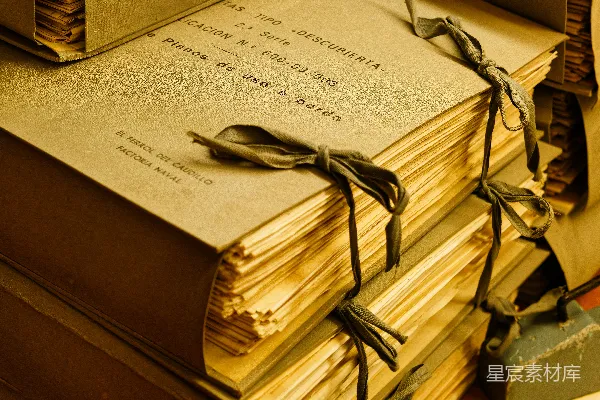 AS TIPO «DESCUBIERTA»
2.ª Serie
ICACIÓN N.º
Planos de uso a bordo
EL FERROL DEL CAUDILLO
FACTORIA NAVAL
星宸素材库